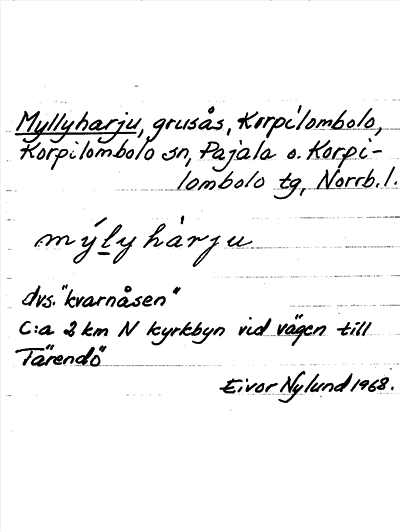 Myllyharju, grusås, Korpilombolo,
Korpilombolo sn, Pajala o. Korpi-
lombolo tg, Norrb. l.
mýlyhàrju
dvs. "kvarnåsen"
C:a 2 km N kyrkbyn vid vägen till
Tärendö
Eivor Nylund 1968.